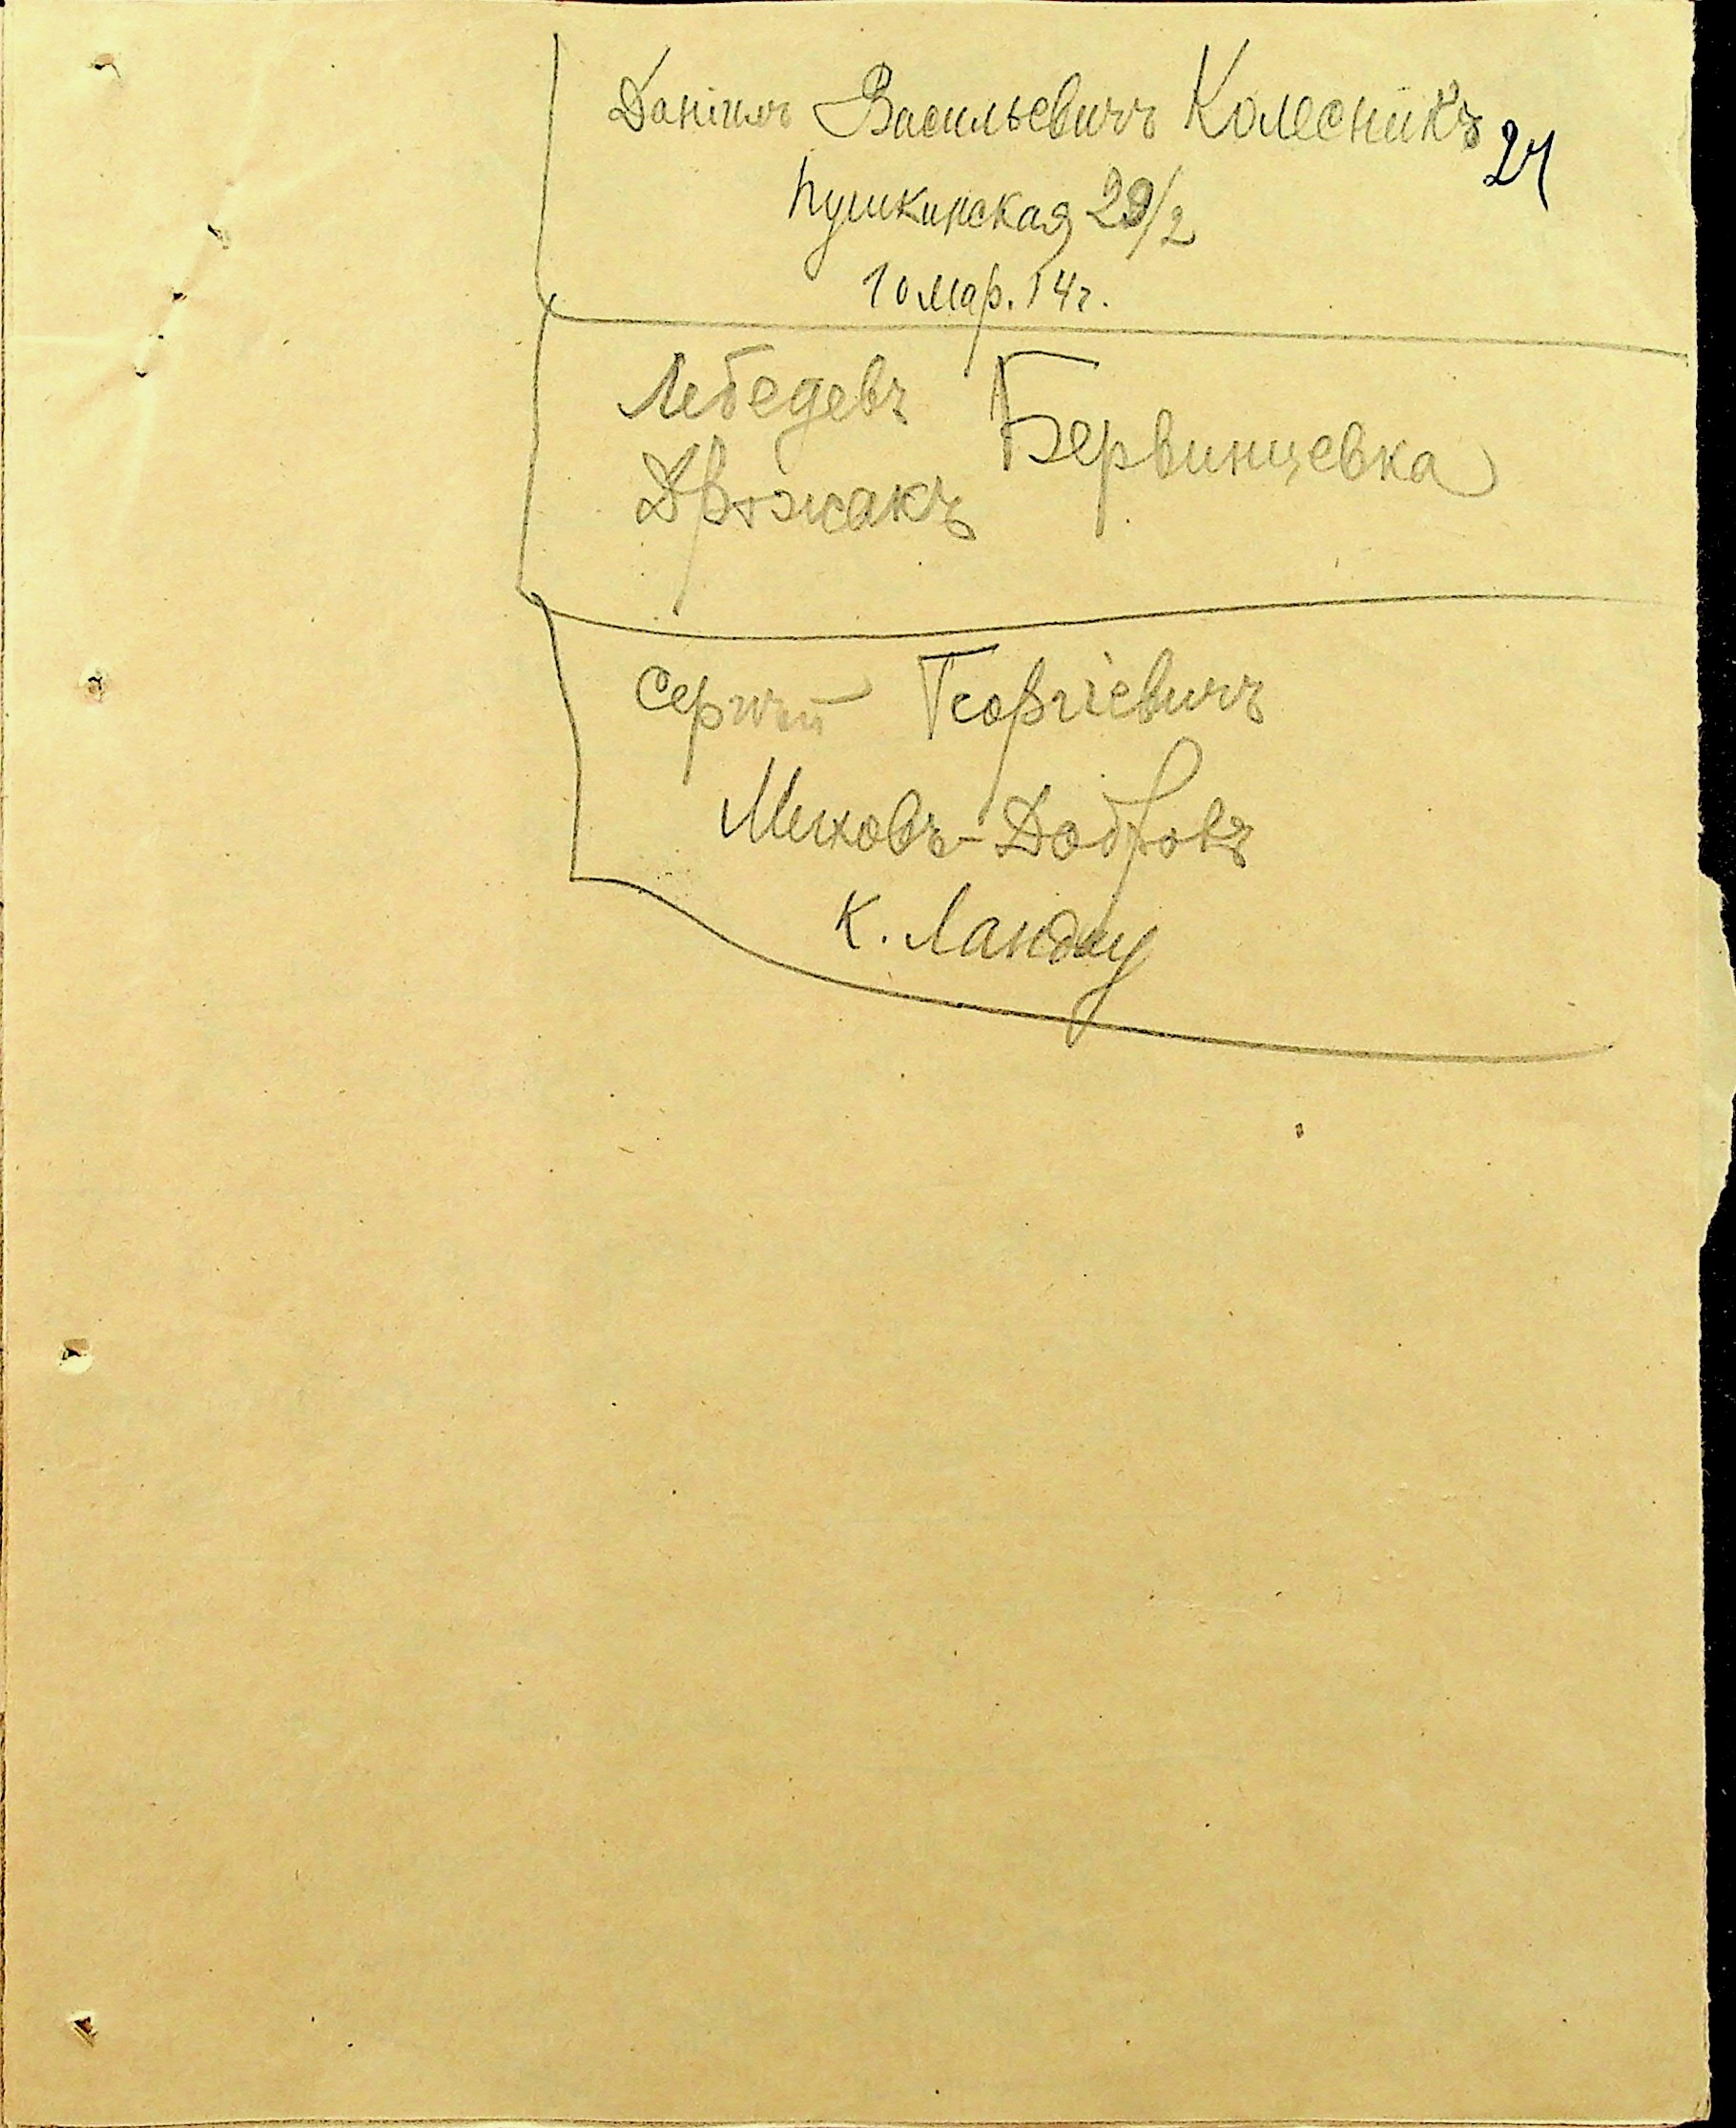 Даніилъ Васильевичъ Колесникъ
24
Пушкинская 29/2
10 мар. 14 г.
Лебедевъ
Бервинцевка
Дрѣжакъ
Сергѣй Георгіевичъ
Миховъ-Добровъ
К. Ландау